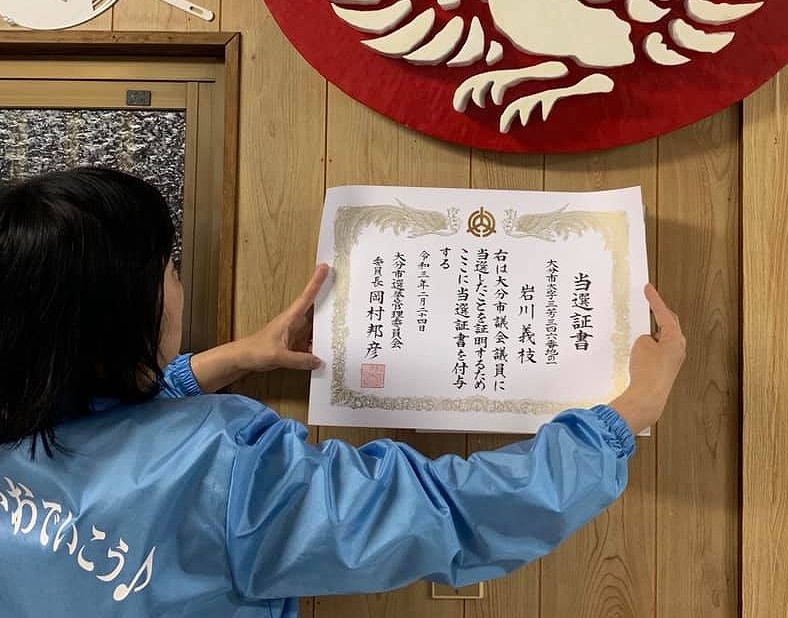 当選証書
大分市大字三芳三四六番地の一
岩川義枝
右は大分市議会議員に
当選したことを証明するため
ここに当選証書を付与
する
令和三年二月二十四日
大分市選挙管理委員会
委員長 岡村邦彦
わでいこう♪